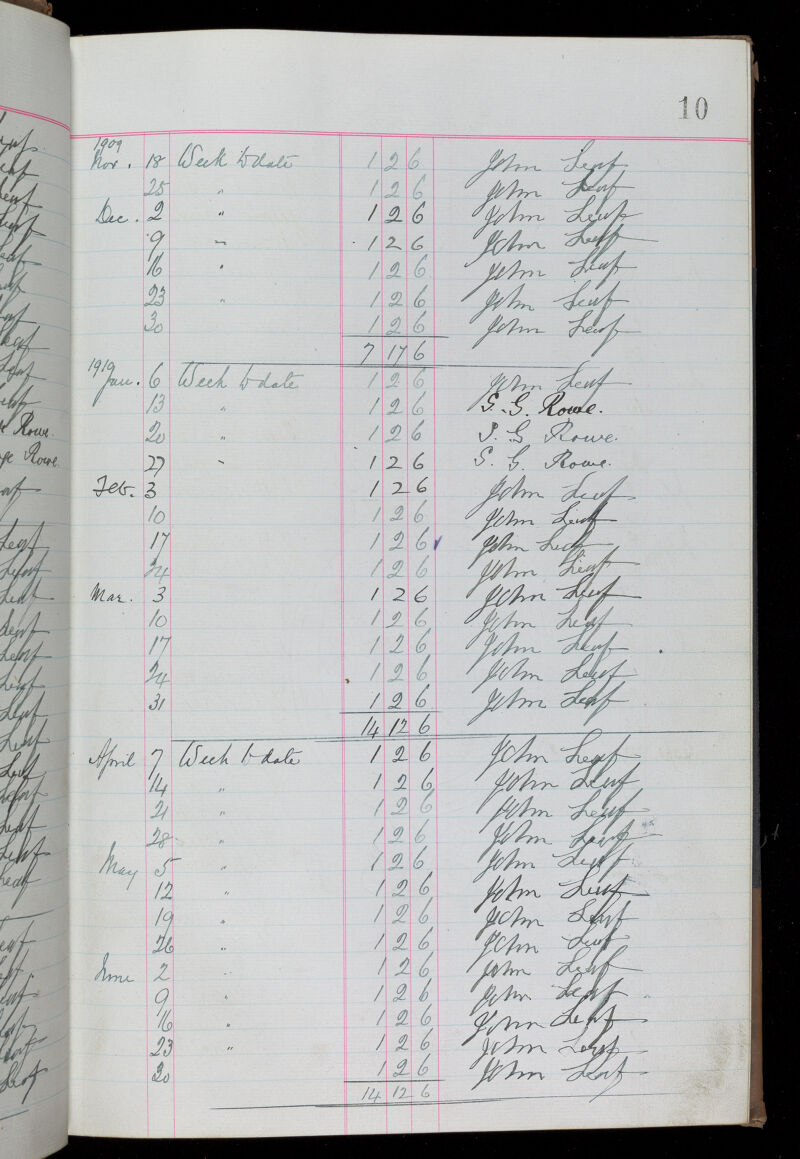 10
1909
Nov. 18 Week to date 1 2 6 John Leaf
25 " 1 2 6 John Leaf
Dec. 2 " 1 2 6 John Leaf
9 " 1 2 6 John Leaf
16 " 1 2 6 John Leaf
23 " 1 2 6 John Leaf
30 1 2 6 John Leaf
7 17 6
1910
Jan. 6 Week to date 1 2 6 John Leaf
13 " 1 2 6 S. G. Rowe.
20 " 1 2 6 S. G Rowe.
27 " 1 2 6 S. G. Rowe.
Feb. 3 1 2 6 John Leaf
10 1 2 6 John Leaf
17 1 2 6 John Leaf
24 1 2 6 John Leaf
Mar. 3 1 2 6 John Leaf
10 1 2 6 John Leaf
17 1 2 6 John Leaf
24 1 2 6 John Leaf
31 1 2 6 John Leaf
14 12 6
April 7 Week to date 1 2 6 John Leaf
14 " 1 2 6 John Leaf
21 " 1 2 6 John Leaf
28 " 1 2 6 John Leaf
May 5 " 1 2 6 John Leaf
12 " 1 2 6 John Leaf
19 " 1 2 6 John Leaf
26 " 1 2 6 John Leaf
June 2 " 1 2 6 John Leaf
9 " 1 2 6 John Leaf
16 " 1 2 6 John Leaf
23 " 1 2 6 John Leaf
30 1 2 6 John Leaf
14 12 6